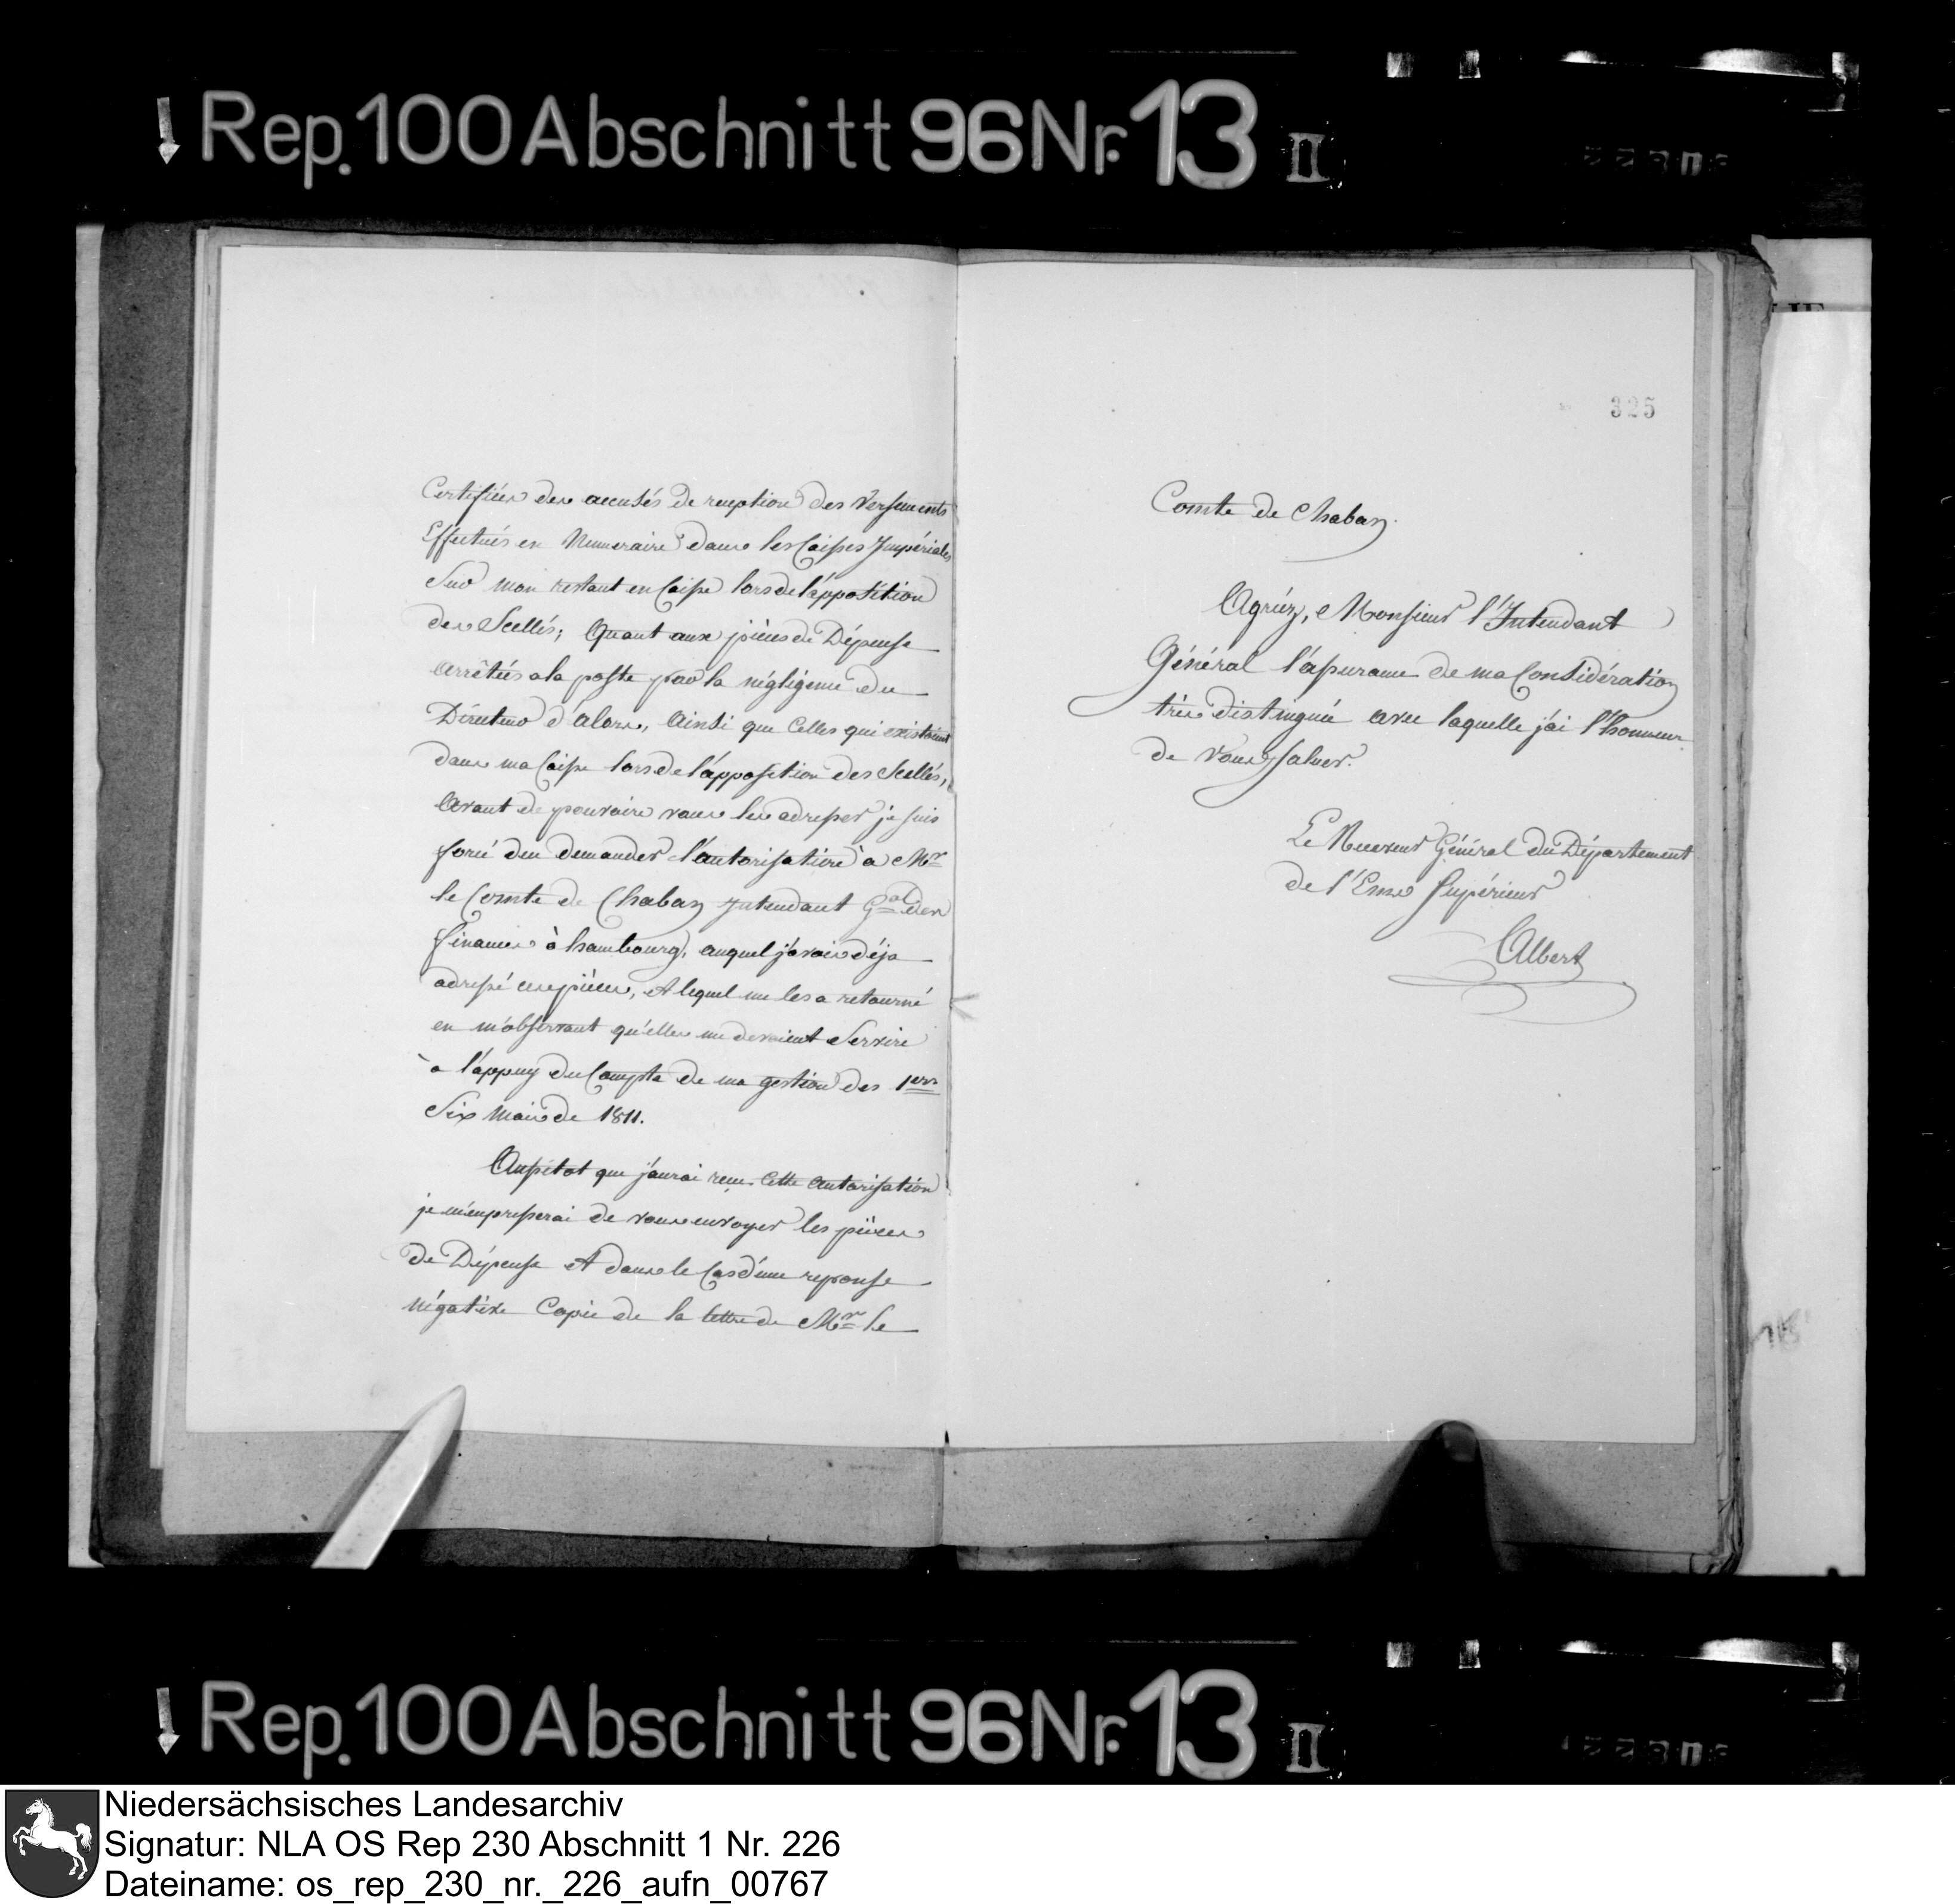 Rep. 100 Abschnitt 96 Nr. 13 II
325
Certifiées des accusés de reception des Versements
Effectués en Numeraire dans les Caisses Impériales
Sur mon restant en Caisse lors de l'apposition
des Scellés; Quant aux pièces de Dépense
arrêtées a la poste par la négligence du
Directeur d'alors, Ainsi que Celles qui existaient
dans ma Caisse lors de l'apposition des Scellés,
Avant de pouvoire vous les adresser je suis
forcé d'en demander l'autorisation à Mr
le Comte de Chaban Intendant Gal des
finances à hambourg, auquel j'avais déja
adressé ces pièces, et lequel me les a retourné
en m'observant qu'elles me devaient Servire
à l'appuy du Compte de ma gestion des 1ers
Six Mois de 1811.
Aussitot que j'aurai recu Cette autorisation
je m'empresserai de vous envoyer les pièces
de Dépense et dans le Cas d'une reponse
négative Copie de la lettre de Mr le
Comte de Chaban.
Agréez, Monsieur l'Intendant
Général l'assurance de ma Considération
très distinguée avec laquelle j'ai l'honneur
de Vous saluer.
Le Receveur Général du Département
de l'Ems Supérieur
Albert
Rep. 100 Abschnitt 96 Nr. 13 II
Niedersächsisches Landesarchiv
Signatur: NLA OS Rep 230 Abschnitt 1 Nr. 226
Dateiname: os_rep_230_nr._226_aufn_00767